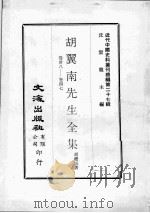 近代中國史料叢刊續編第二十七輯
沈雲龍主編
胡翼南先生全集
胡禮垣著
卷卅八—卷四七
文海出版社有限公司印行